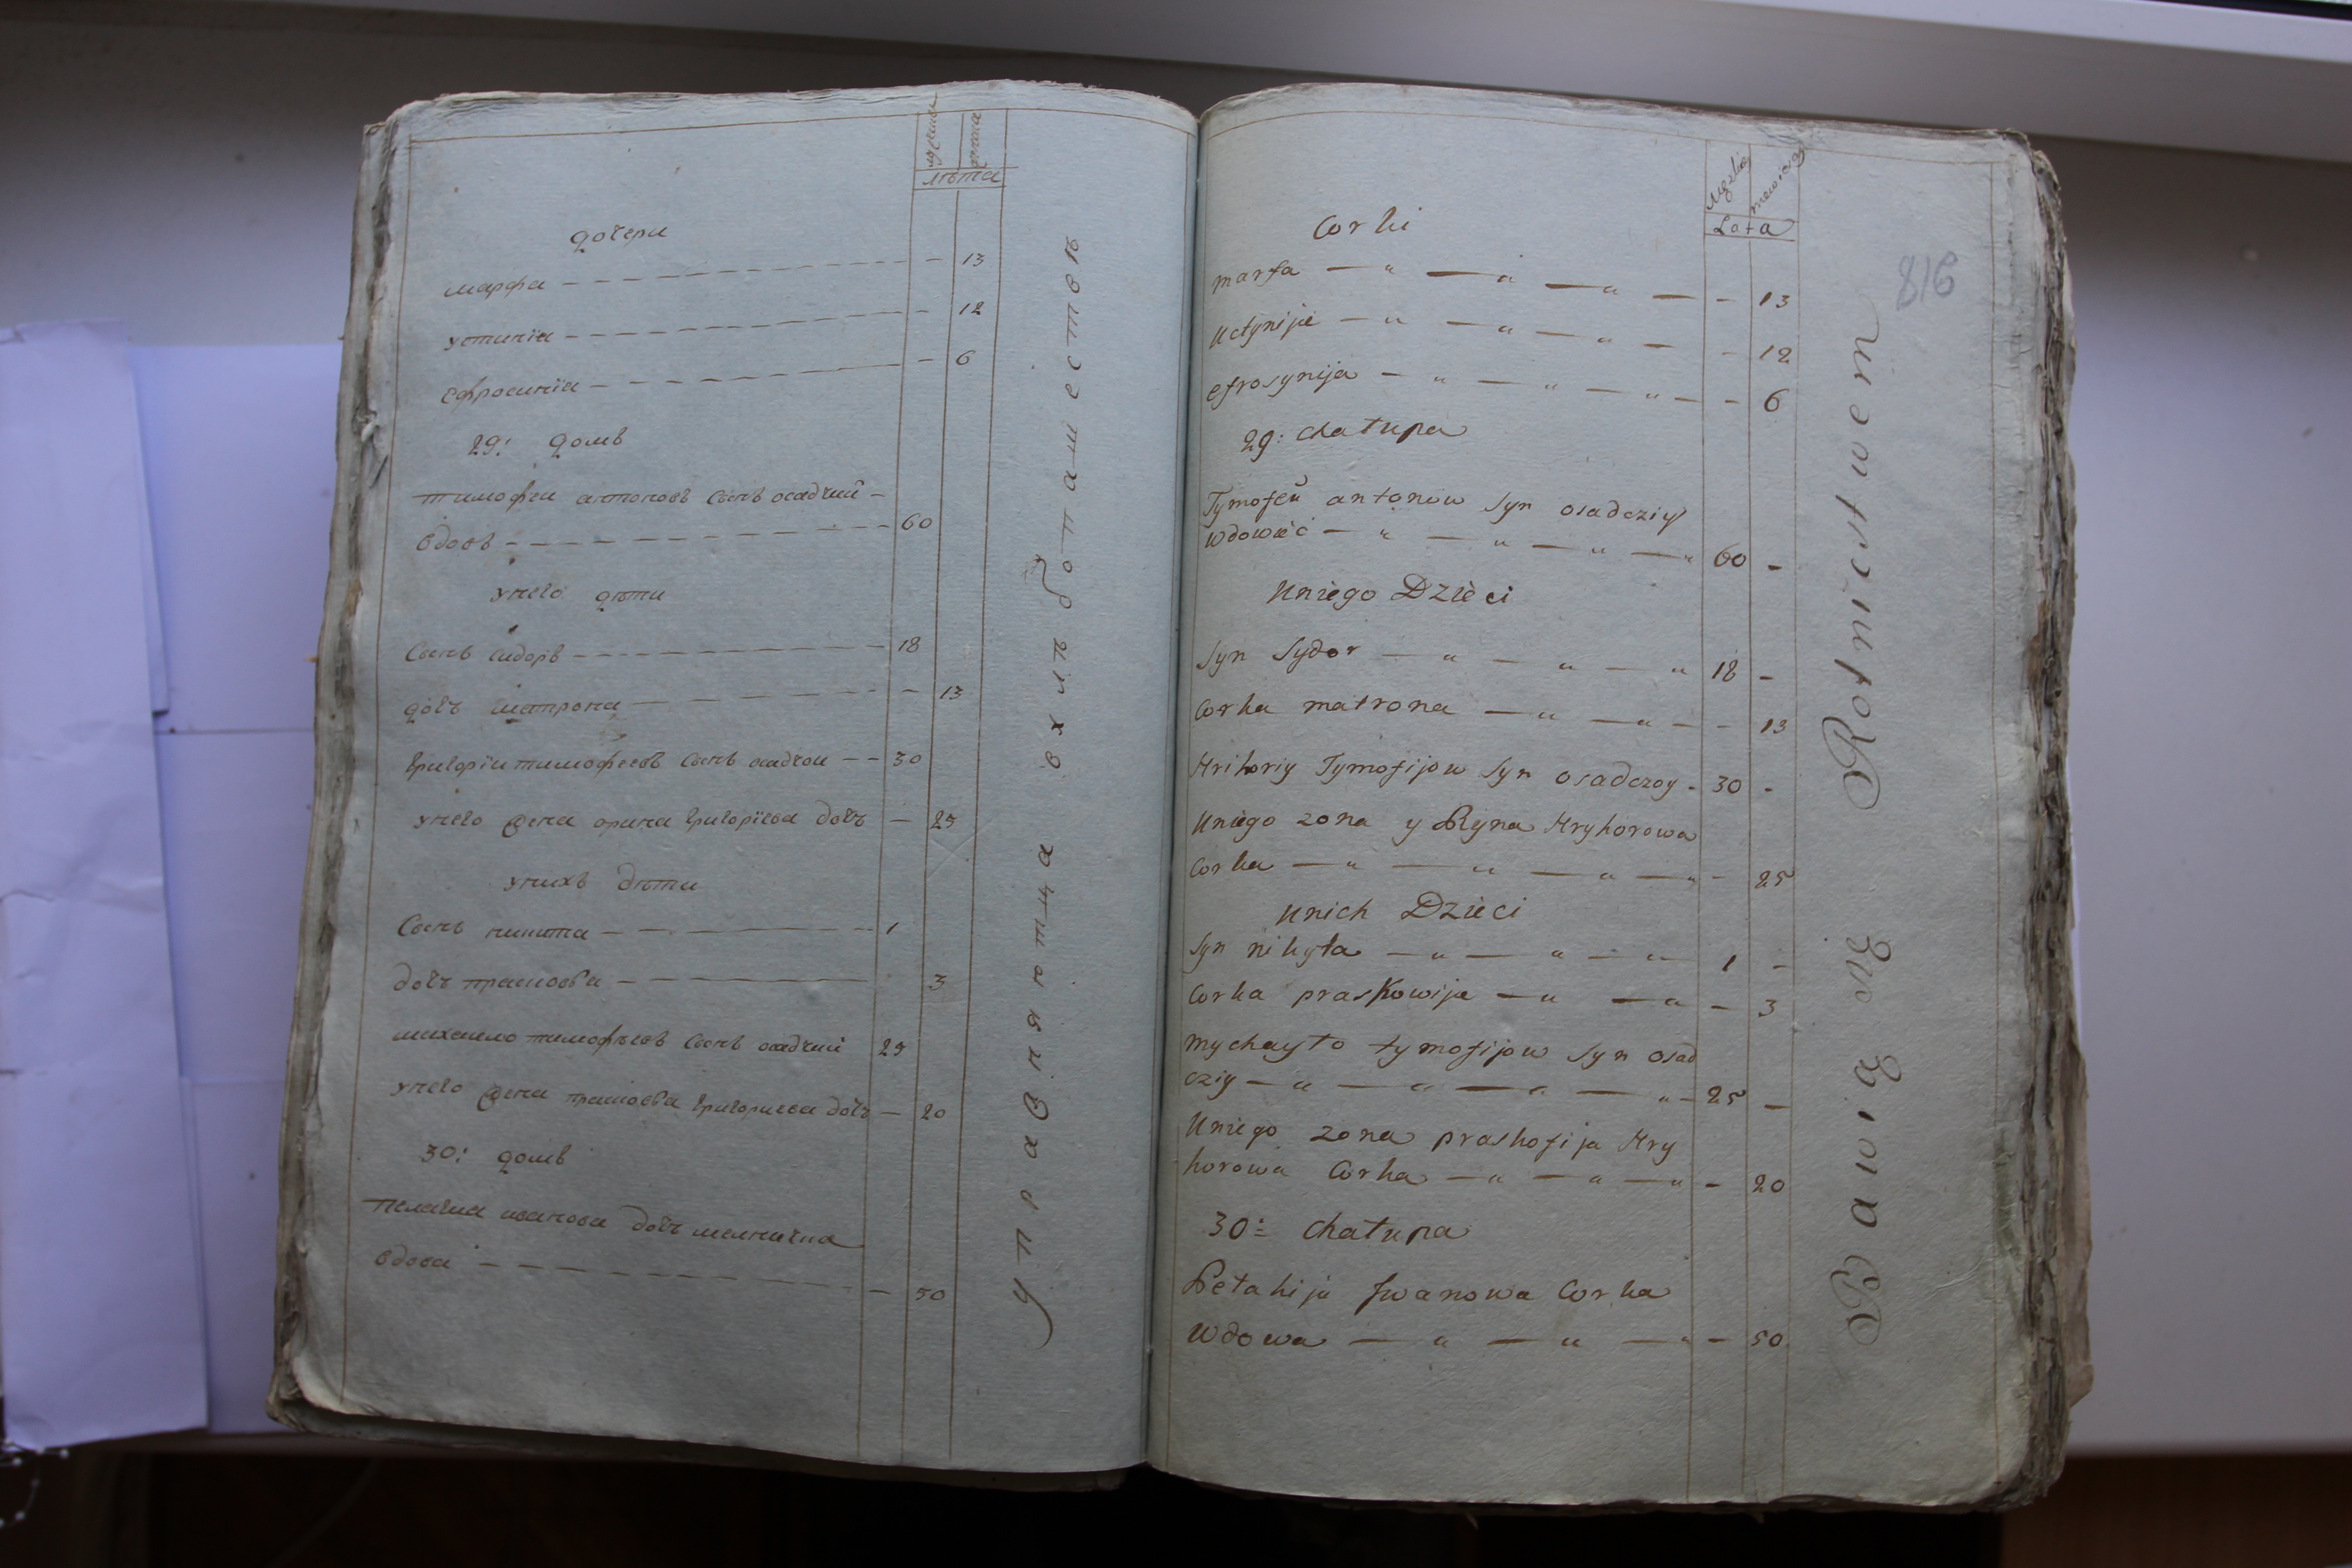 мужеска
женска
лѣта
дочери
марфа — 13
устинїа — 12
ефросинїа — 6
29: домъ
тимофеи антоновъ сынъ осадчий
вдовъ — 60
унего дѣти
Сынъ сидоръ — 18
дочъ матрона — 13
григорїи тимофеевъ сынъ осадчои — 30
унего жена орина григорїева дочъ — 25
унихъ дѣти
Сынъ никита — 1
дочъ прасковва — 3
михаило тимофѣевъ сынъ осадчий 25
унего жена прасковва григориева дочъ — 20
30: домъ
пелагиа иванова дочъ
вдова — 50
упражняютца вхлѣбопашествѣ
Męzkie
Lata
816
Corki
marfa — 13
Uctynija — 12
efrosynija — 6
29: chatupa
Tymofeŭ antonow Syn osadcziy
wdowieć — 60 -
Uniego Dzieci
Syn Sydor — 18 -
Corka matrona — 13
Hrihoriy Tymofijow Syn osadczoy - 30 -
Uniego zona y Ryna Hryhorowa
Corka — 25
Unich Dzieci
Syn nikyta — 1 -
Corka praskowija — 3
mychayto tymofijow Syn osad
cziy — 25 -
Uniego zona praskofija Hry
horowa Corka — 20
30: chatupa
Petahija Jwanowa Corka
Wdowa — 50
Bawią się Rotnictwem